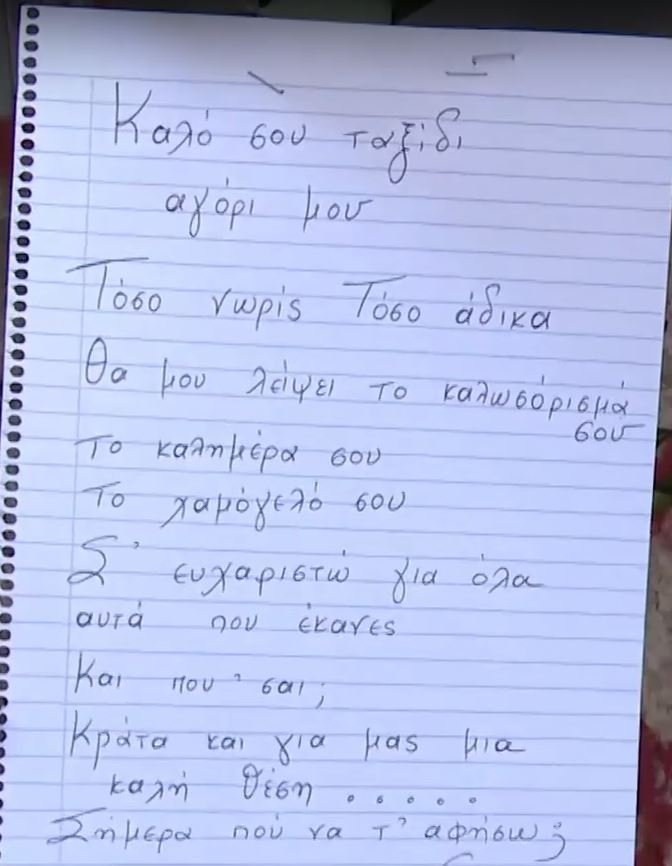 Καλό σου ταξίδι
αγόρι μου
Τόσο νωρίς Τόσο άδικα
Θα μου λείψει το καλωσόρισμά
σου
Το καλημέρα σου
Το χαμόγελό σου
Σ' ευχαριστώ για όλα
αυτά που έκανες
Και που 'σαι;
Κράτα και για μας μια
καλή θέση . . . . .
Σήμερα πού να τ' αφήσω;